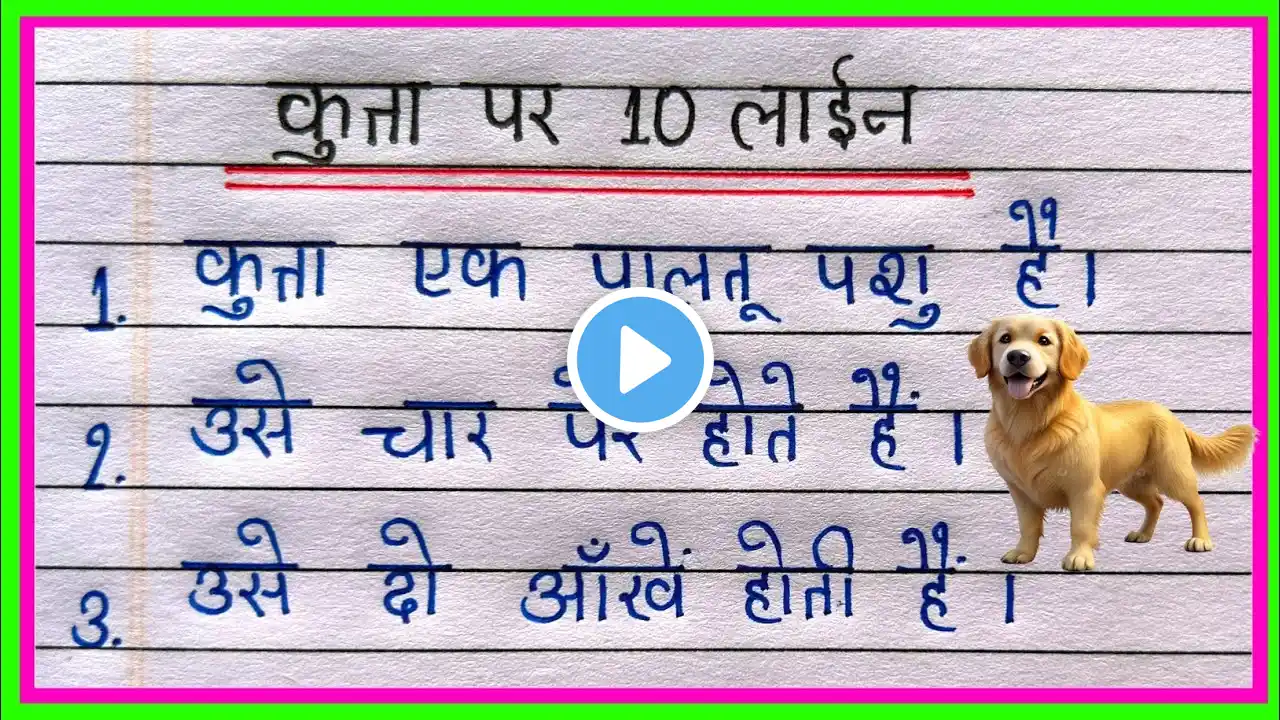 कुत्ता पर 10 लाईन
1. कुत्ता एक पालतू पशु है।
2. उसे चार पैर होते हैं।
3. उसे दो आँखें होती हैं।